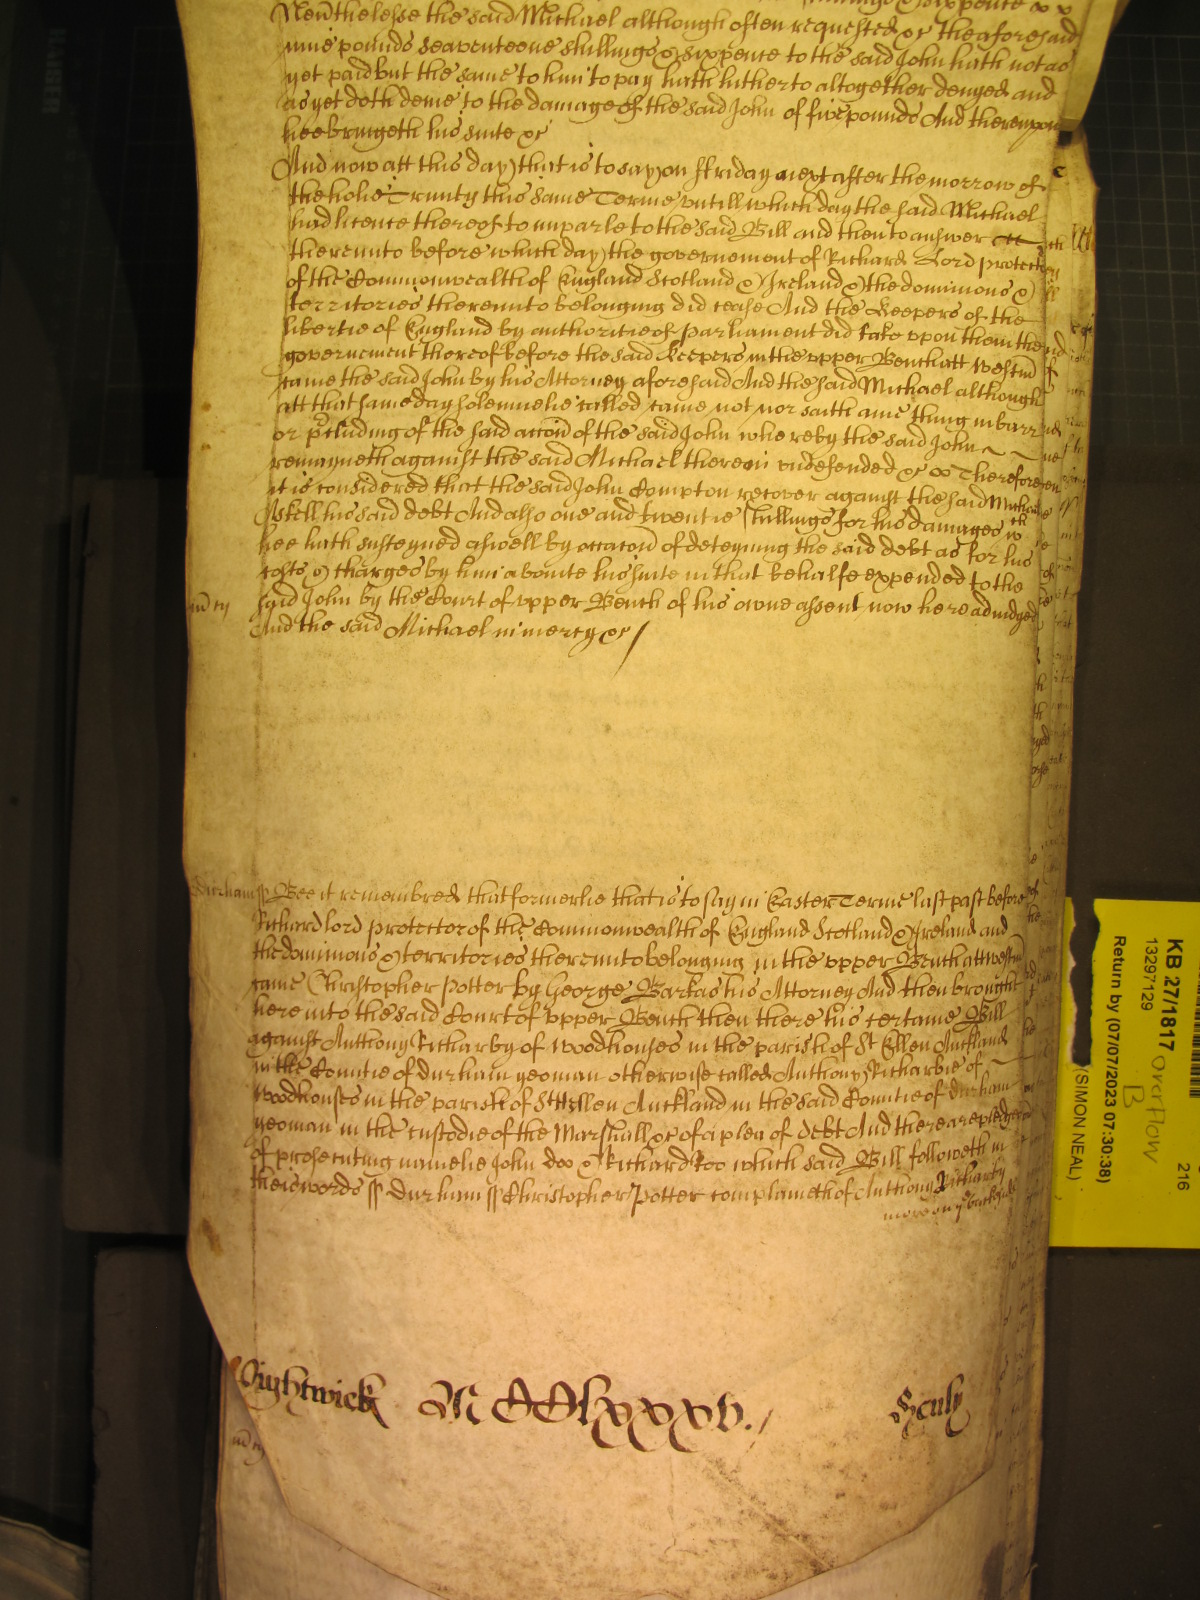 shillings & sixpence
Nev̄thelesse the said Michael although often requested &c the aforesaid
nine pounds seaventeene shillings & sixpence to the said John hath not as
yet paid but the same to him to pay hath hitherto altogether denyed and
as yet doth denie to the damage of the said John of five pounds And thereupon
hee bringeth his suite &c
And now att this day (that is to say) on ffriday next after the morrow of
the holie Trinity this same Terme untill which day the said Michael
had licence thereof to imparle to the said Bill and then to answer &c
thereunto before which day) the governement of Richard Lord protector
of the Commonwealth of England Scotland & Ireland & the dominions &
territories thereunto belonging did cease And the Keepers of the
libertie of England by authoritie of parliament did take upon them the
governement thereof before the said Keepers in the upper Bench att Westm̄
came the said John by his Attorney aforesaid And the said Michael although
att that same day solemnelie called came not nor saith anie thing in barr
or p̄cluding of the said acc̄on of the said John whereby the said John
remayneth against the said Michael therein undefended &c Therefore
it is considered that the said John Compton recover against the said Michael
Askell his said debt And also one and twentie shillings for his damages wch
hee hath susteyned aswell by occac̄on of deteyning the said debt as for his
costs & charges by him aboute his suite in that behalfe expended to the
said John by the Court of upper Bench of his owne assent now here adiudged
And the said Michael in mercy &c /
Durham ss Bee it remembred that formerlie that is to say in Easter Terme last past before
Richard lord protector of the Commonwealth of England Scotland & Ireland and
the dominions & territories thereunto belonging in the upper Bench att westm̄
came Christopher Potter by George Barkas his Attorney And then brought
here into the said Court of upper Bench then there his certaine Bill
against Anthony Richarby of Woodhouses in the parish of St Ellen Auckland
in the Countie of Durham yeoman otherwise called Anthony Richarbie of
Woodhouses in the parish of St Hellen Auckland in the said Countie of Durham
yeoman in the custodie of the Marshall &c of a plea of debt And there are pledges
of prosecuting namelie John doo & Richard Roo which said Bill followeth in
theis words ss Durham ss Christopher Potter complaineth of Anthony Richarby
more on ye backside
Wightwick MCClxxxv.
KB 27/1817
13297129
Return by (07/07/2023 07:30:38)
(SIMON NEAL)
overflow
B
216